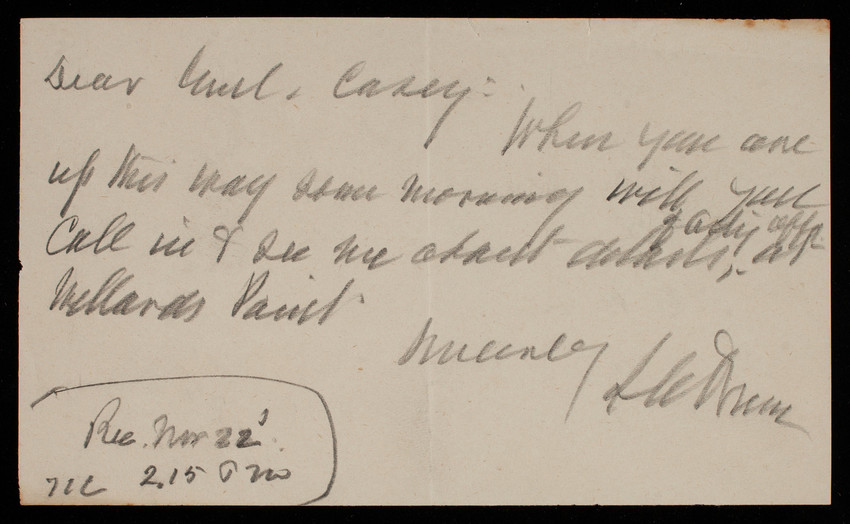 Dear Genl. Casey:
When you are
up this way some morning will you
Call in & see me about details, at
Willards Point
Sincerely
R C Drum
Rec. Nov 22
2.15 P m